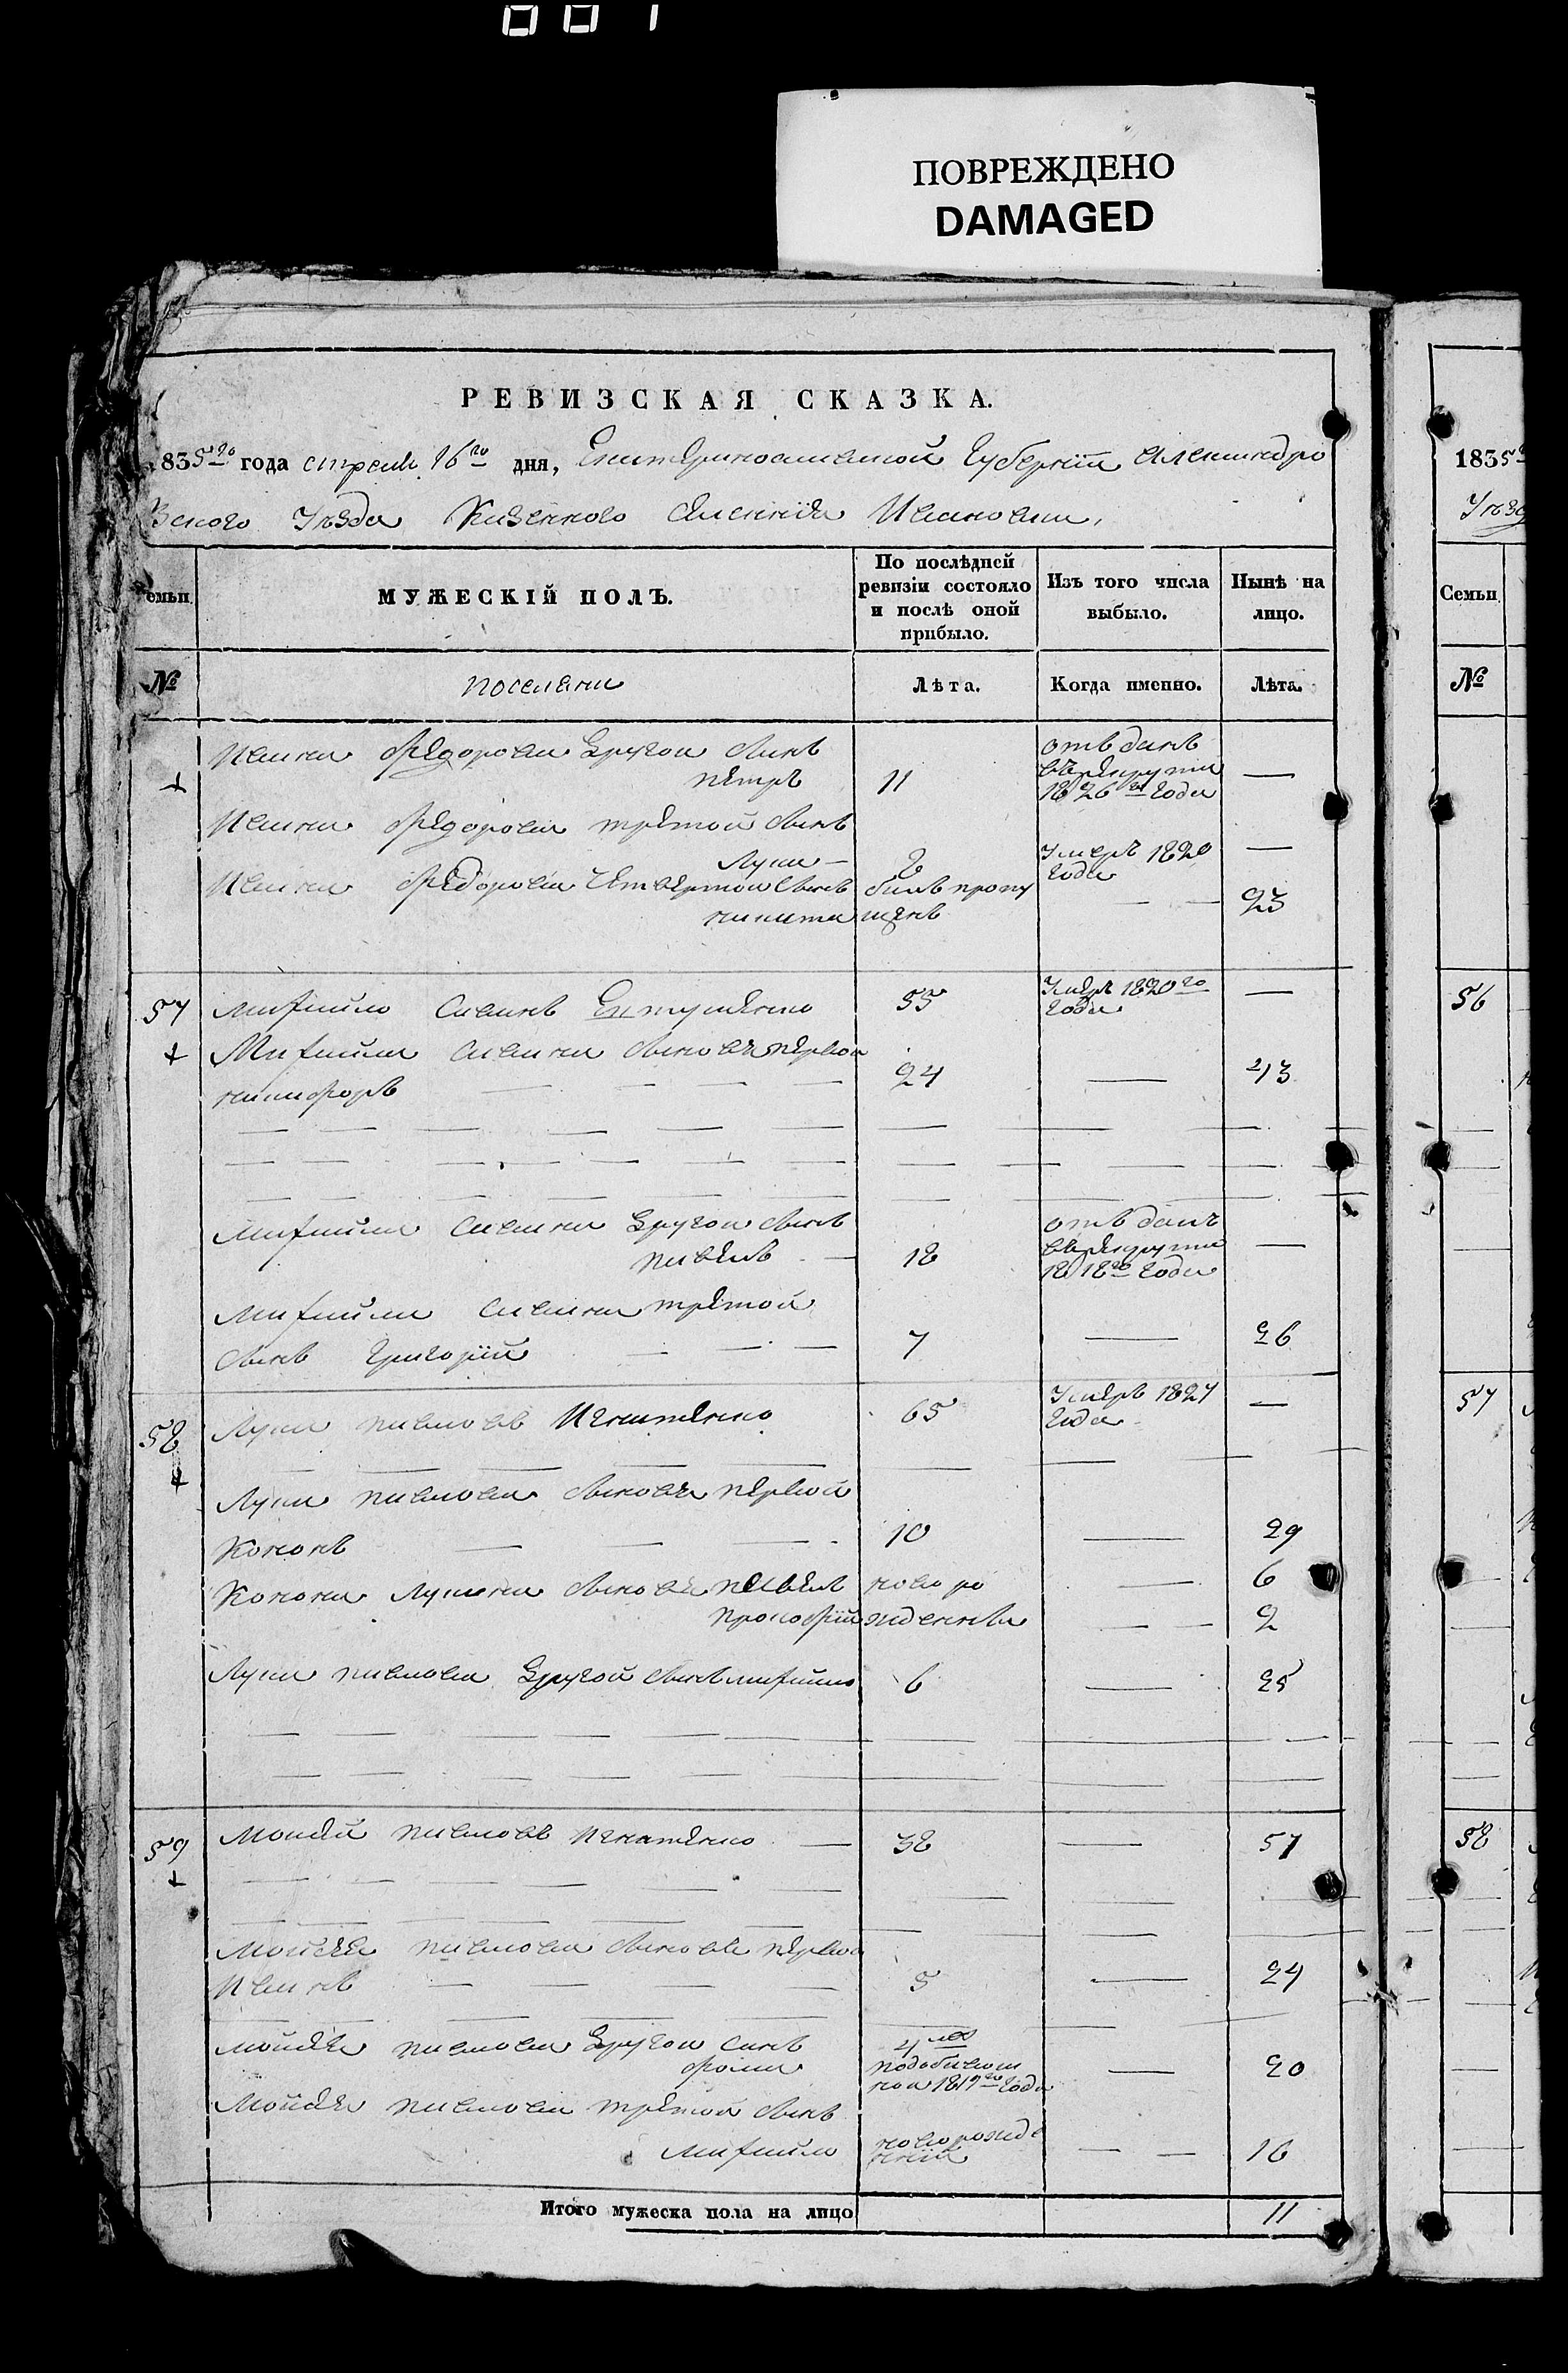 ПОВРЕЖДЕНО
DAMAGED
РЕВИЗСКАЯ СКАЗКА.
1835го года апреля 16го дня, Екатеринославской Губернiи Александро
вского Уезда Казенного селенiя Ивановки,
Семьи
МУЖЕСКІЙ ПОЛЪ.
По послѣдней ревизіи состояло и послѣ оной прибыло.
Изъ того числа выбыло.
Нынѣ на лицо.
№
поселяни
Лѣта.
Когда именно.
Лѣта.
Ивана Федорова другой сынъ Петръ 11 отъданъ въ рекруты 1826го года —
Ивана Федорова третой сынъ Лука — 2 Умеръ 1820 года —
Ивана Федорова Четвертой сынъ Никита былъ пропущенъ — — 23
57 Михайло Савинъ 55 Умеръ 1820го года —
Михайла Савина сыновья первой
Никифоръ 24 — 43
Михайла Савина другой сынъ
Павелъ — 18 отъданъ въ рекруты 1818го года —
Михайла Савина третой
сынъ Григорій 7 — 26
58 Лука Павловъ Игнатенко 65 Умеръ 1827 года —
Луки Павлова сыновья первой
Кононъ 10 — 29
Конона Лукина сыновья Павелъ — 6
Прокофій новорожденныя — — 2
Луки Павлова другой сынъ Михайло 6 — 25
59 Моисей Павловъ Игнатенко — 38 — 57
Мойсея Павлова сыновья первой
Иванъ 5 — 24
Мойсея Павлова другой сынъ
Фома 4 1819го года — 20
Мойсея Павлова третой сынъ
Михайло новорожденій — — 16
Итого мужеска пола на лицо 11
1835
Уезд
Семьи
№
56
57
58